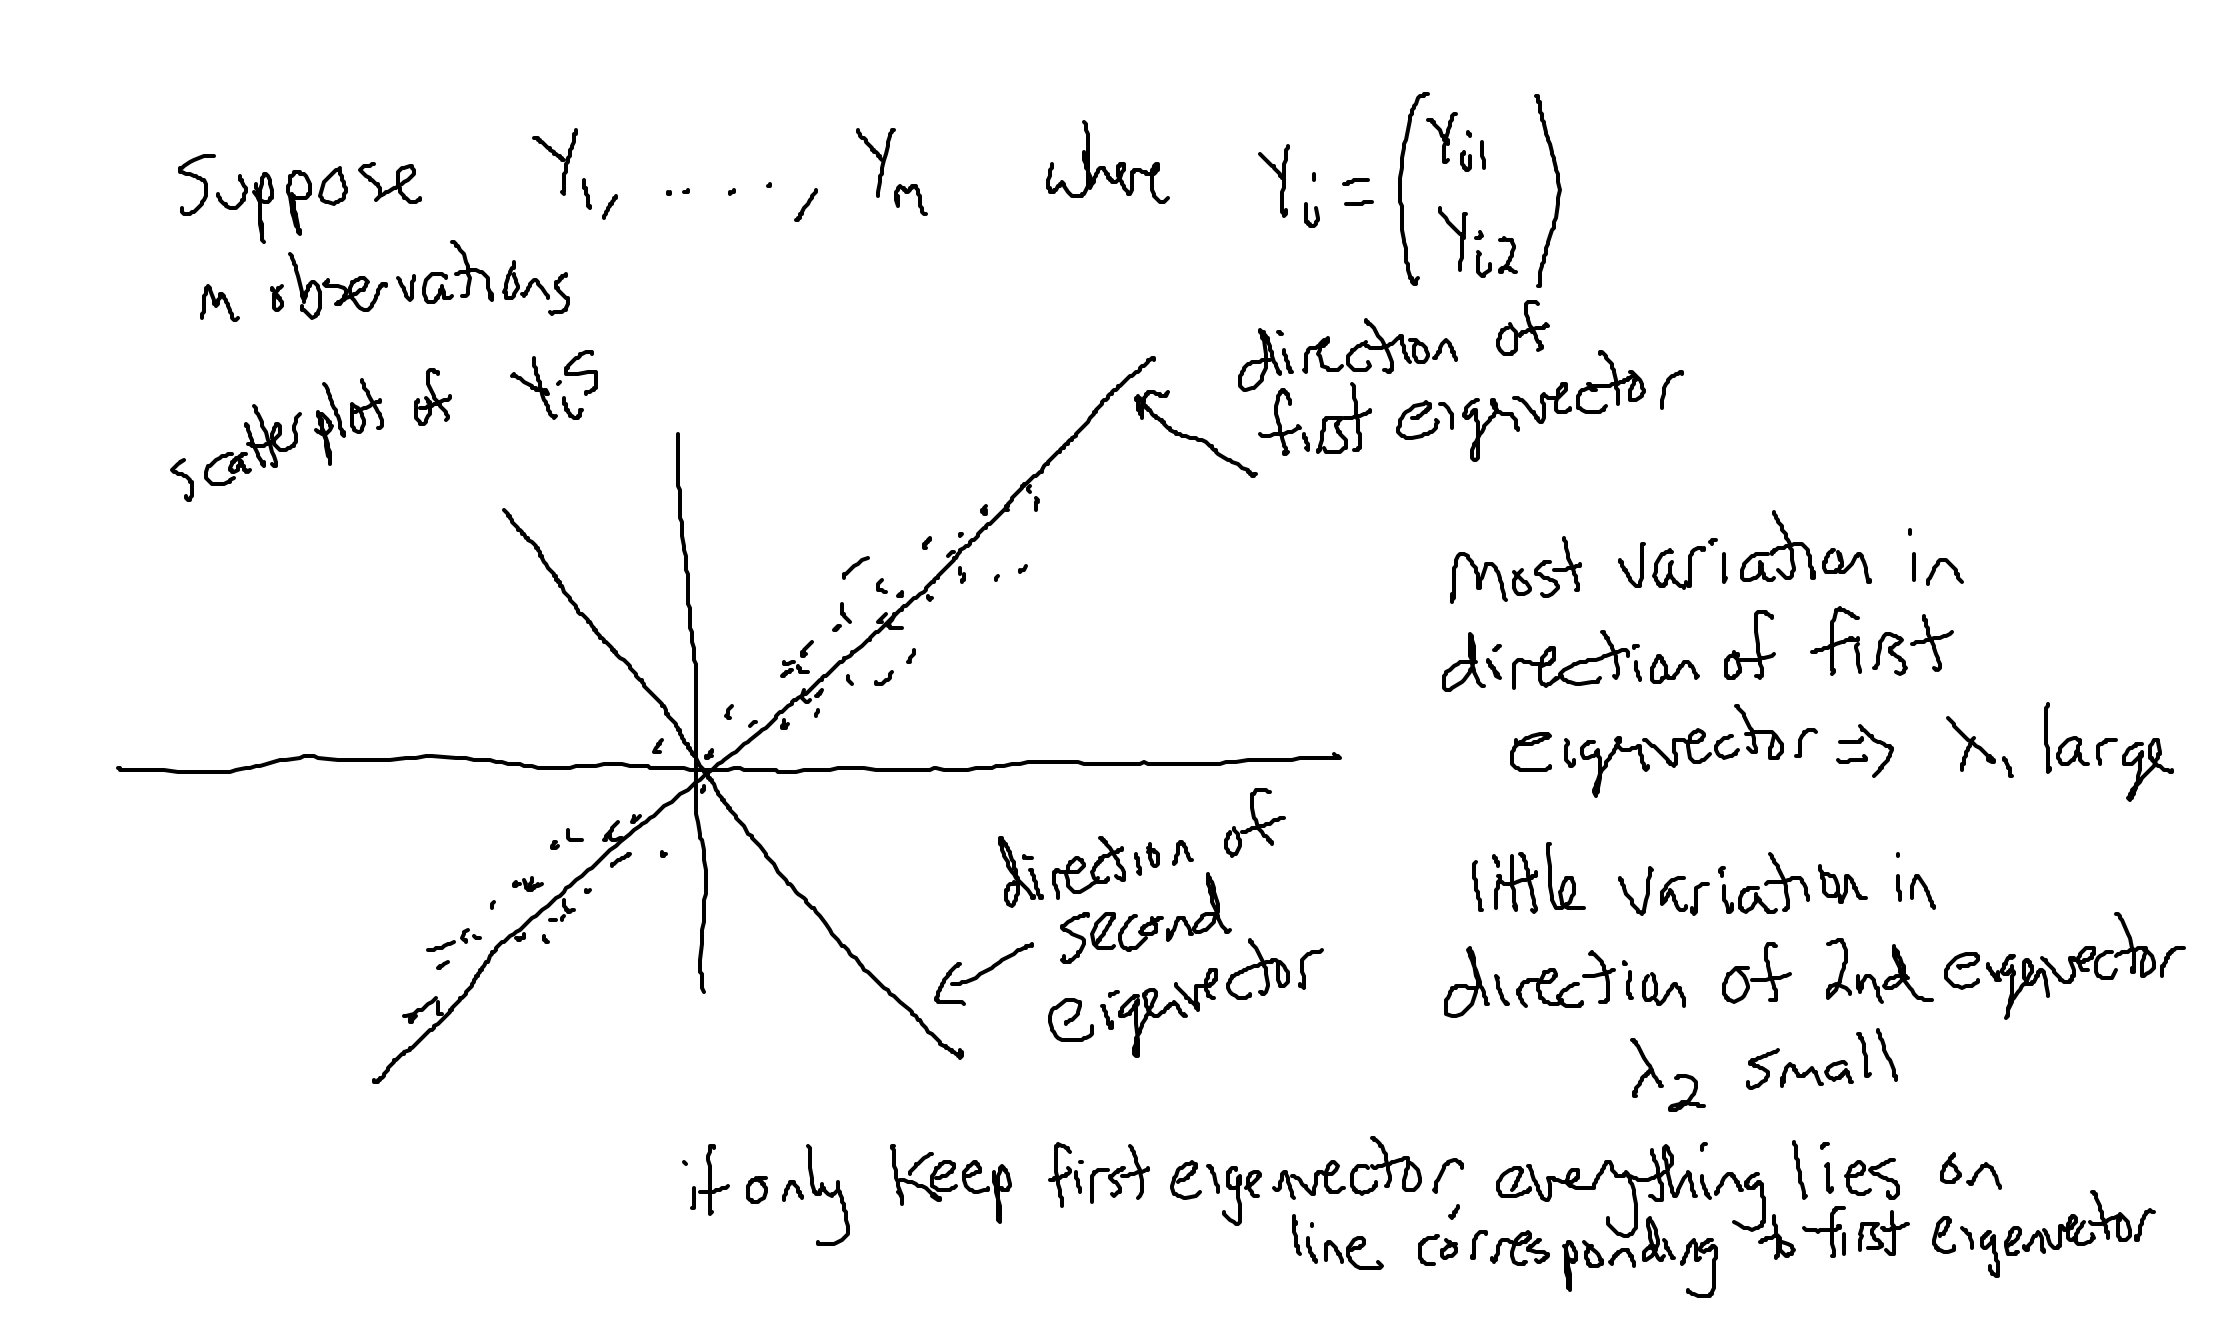 Suppose Y₁, ...., Yₘ where Yᵢ = (Yᵢ₁ Yᵢ₂)
m observations
scatterplot of Yᵢs
direction of
first eigenvector
most variation in
direction of first
eigenvector => λ₁ large
direction of
second
eigenvector
little variation in
direction of 2nd eigenvector
λ₂ small
if only keep first eigenvector, everything lies on
line corresponding to first eigenvector